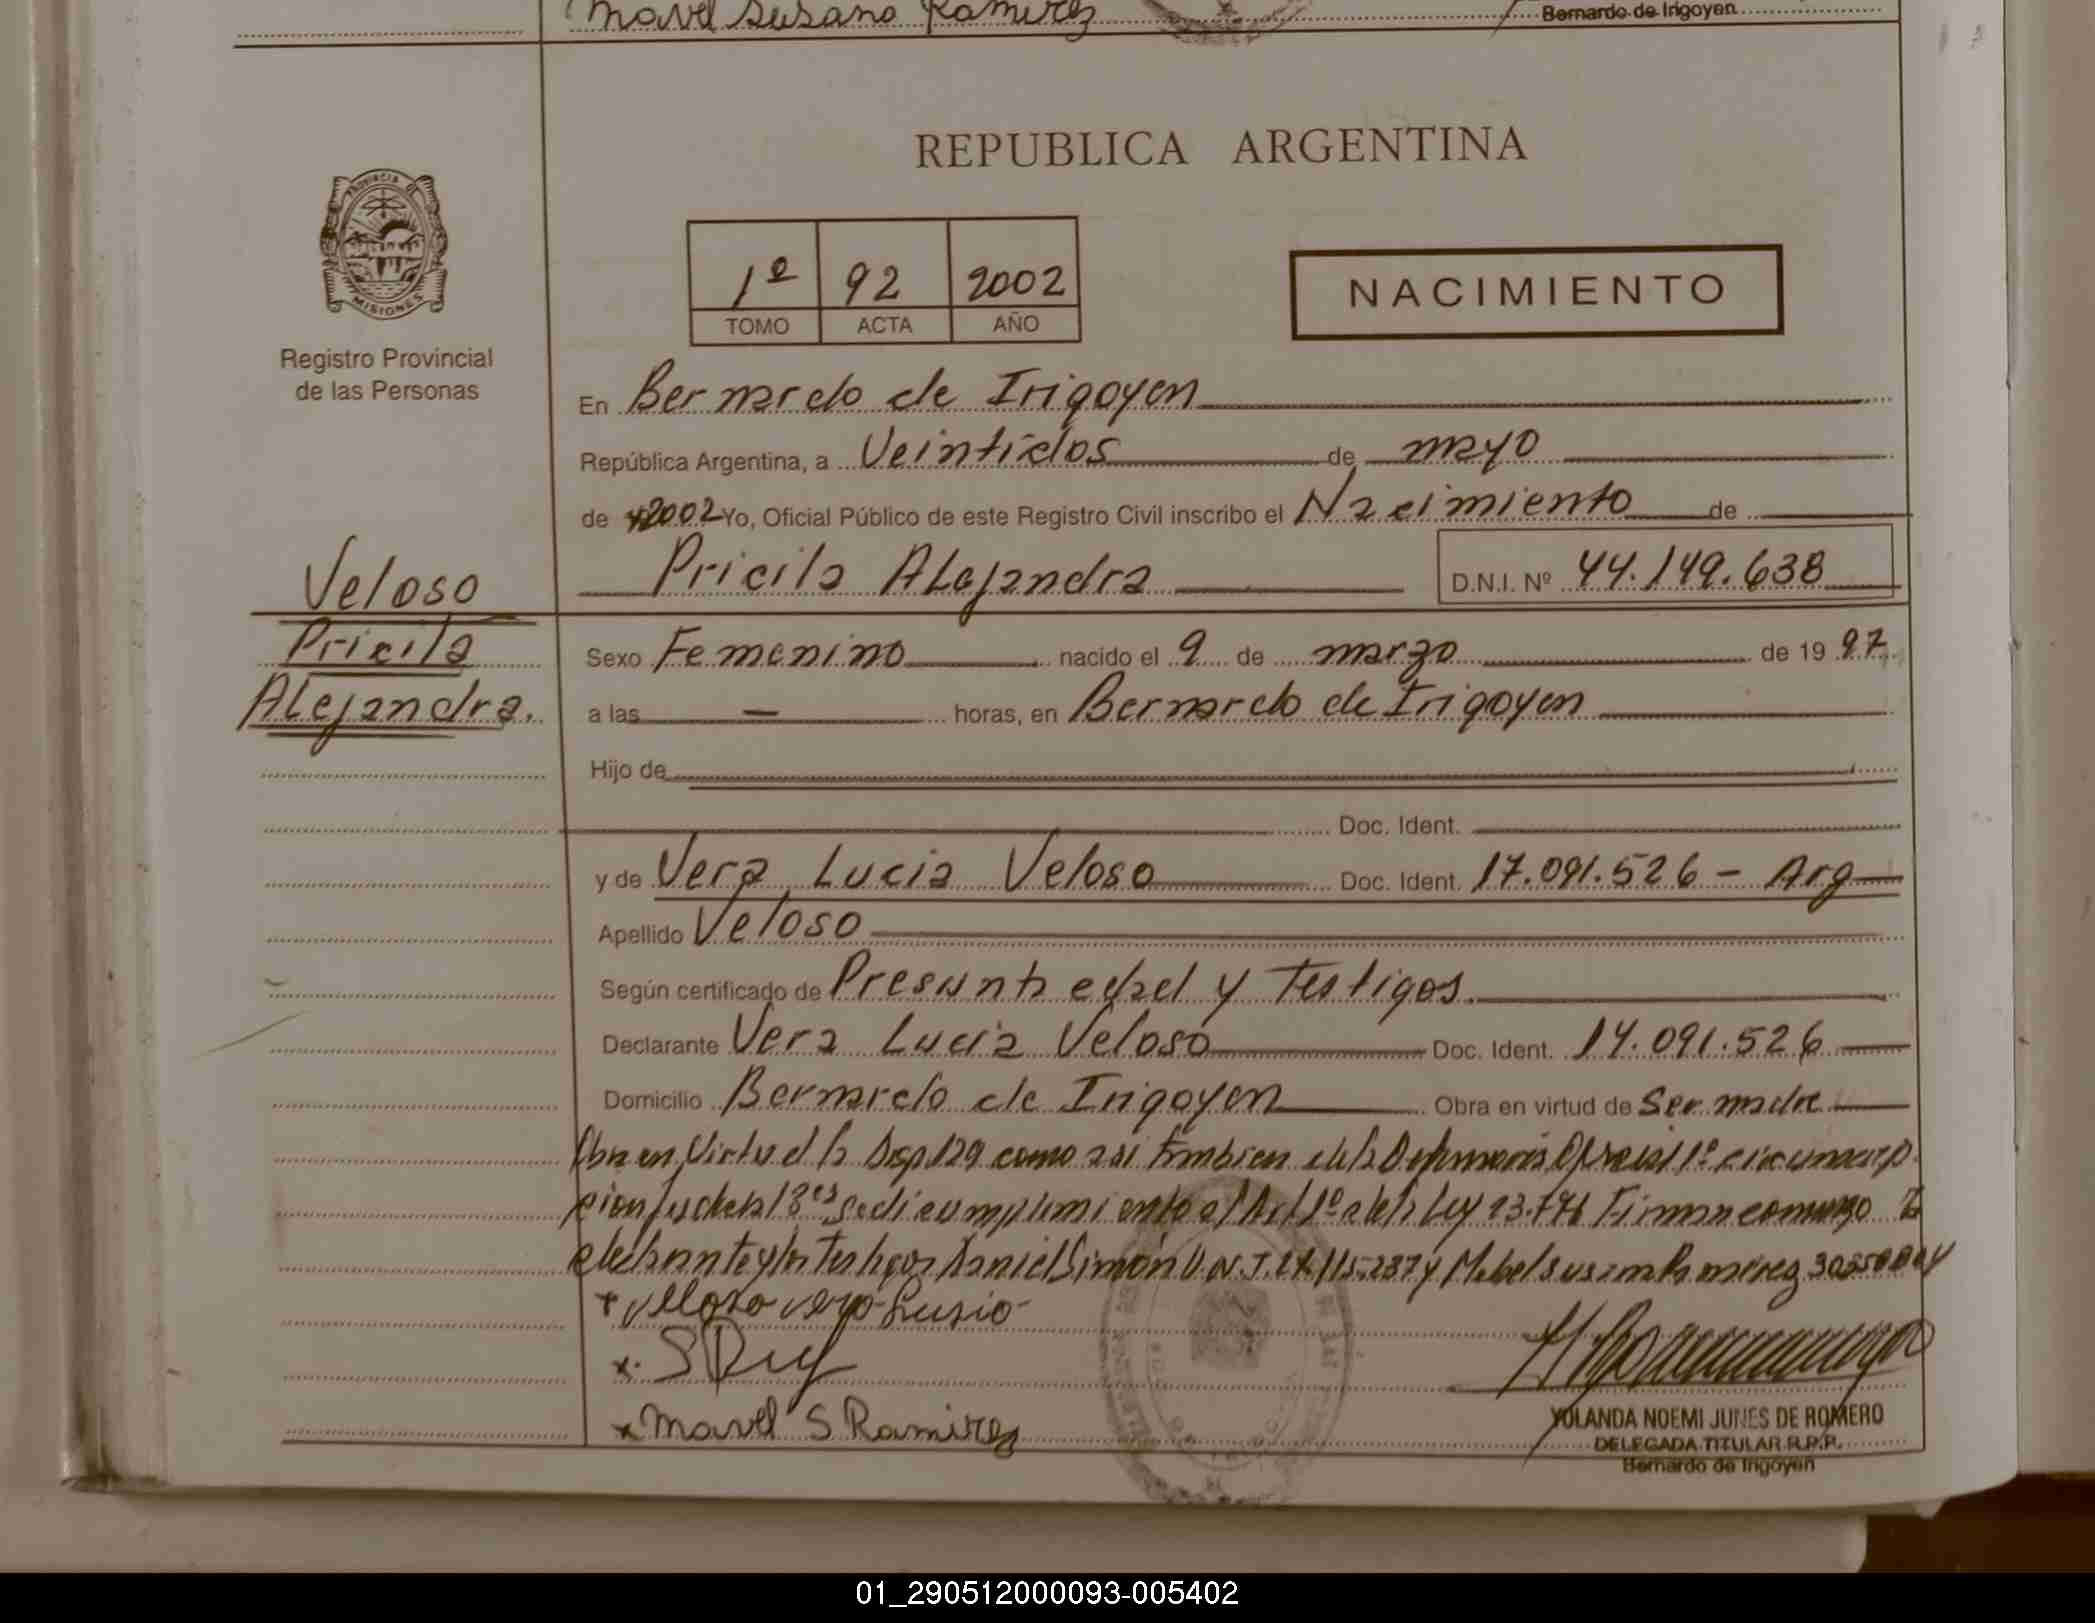 Mavel Susana Ramirez
Bernardo de Irigoyen
REPUBLICA ARGENTINA
PROVINCIA DE
MISIONES
Registro Provincial
de las Personas
1º 92 2002
TOMO ACTA AÑO
NACIMIENTO
En Bernardo de Irigoyen
República Argentina, a Veintidos de mayo
de 2002 Yo, Oficial Público de este Registro Civil inscribo el Nacimiento de
Pricila Alejandra D.N.I. Nº 44.149.638
Veloso
Pricila
Alejandra.
Sexo Femenino nacido el 9 de marzo de 1997
a las — horas, en Bernardo de Irigoyen
Hijo de
Doc. Ident.
y de Vera Lucia Veloso Doc. Ident. 17.091.526 - Arg
Apellido Veloso
Según certificado de Presunta edad y Testigos.
Declarante Vera Lucia Veloso Doc. Ident. 14.091.526
Domicilio Bernardo de Irigoyen Obra en virtud de Ser madre
Obra en Virtud la Disp 129 como asi tambien de la Defensoria Oficial 1º circunscrip
cion Judicial cumplimiento al Art 1º de la Ley Firman conmigo la
declarante y los Testigos Daniel Simón D.N.I. y Mabel Susana Ramirez
x Velloso vera Lusia
x
x Mavel S Ramirez
YOLANDA NOEMI JUNES DE ROMERO
DELEGADA TITULAR R.P.P.
Bernardo de Irigoyen
01_290512000093-005402